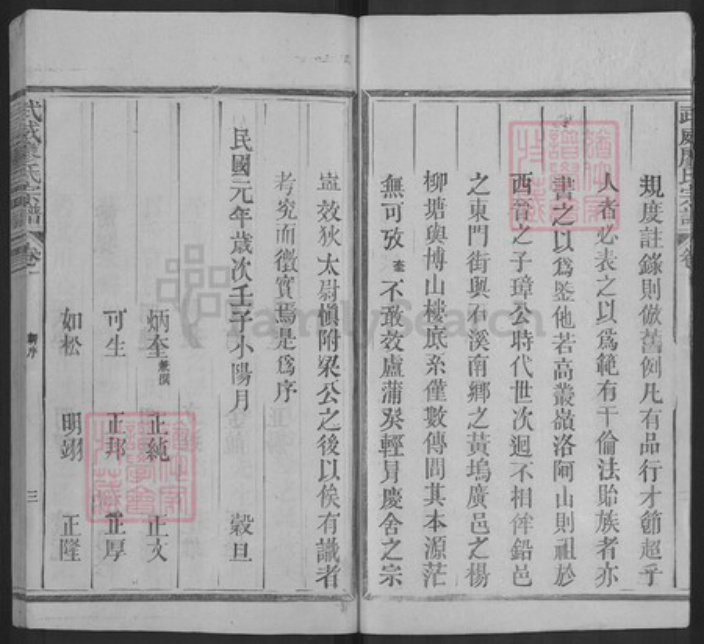 規度註錄則倣舊例凡有品行才節超乎
人者必表之以爲範有干倫法貽族者亦
書之以爲鑒他若高叢嶺洛阿山則祖於
西晉之子璋公時代世次迥不相侔鉛邑
之東門街與石溪南鄉之黃塢廣邑之楊
柳塘與博山樓底系僅數傳問其本源茫
無可攷 奎 不敢效盧蒲癸輕冐慶舍之宗
寧效狄太尉愼附梁公之後以俟有識者
考究而徵實焉是爲序
民國元年歲次壬子小陽月 穀旦
炳奎 敬撰 正純 正文
可生 正邦 正厚
如松 明翊 正隆
武威廖氏宗譜 卷
武威廖氏宗譜 卷一 新序 三
FamilySearch